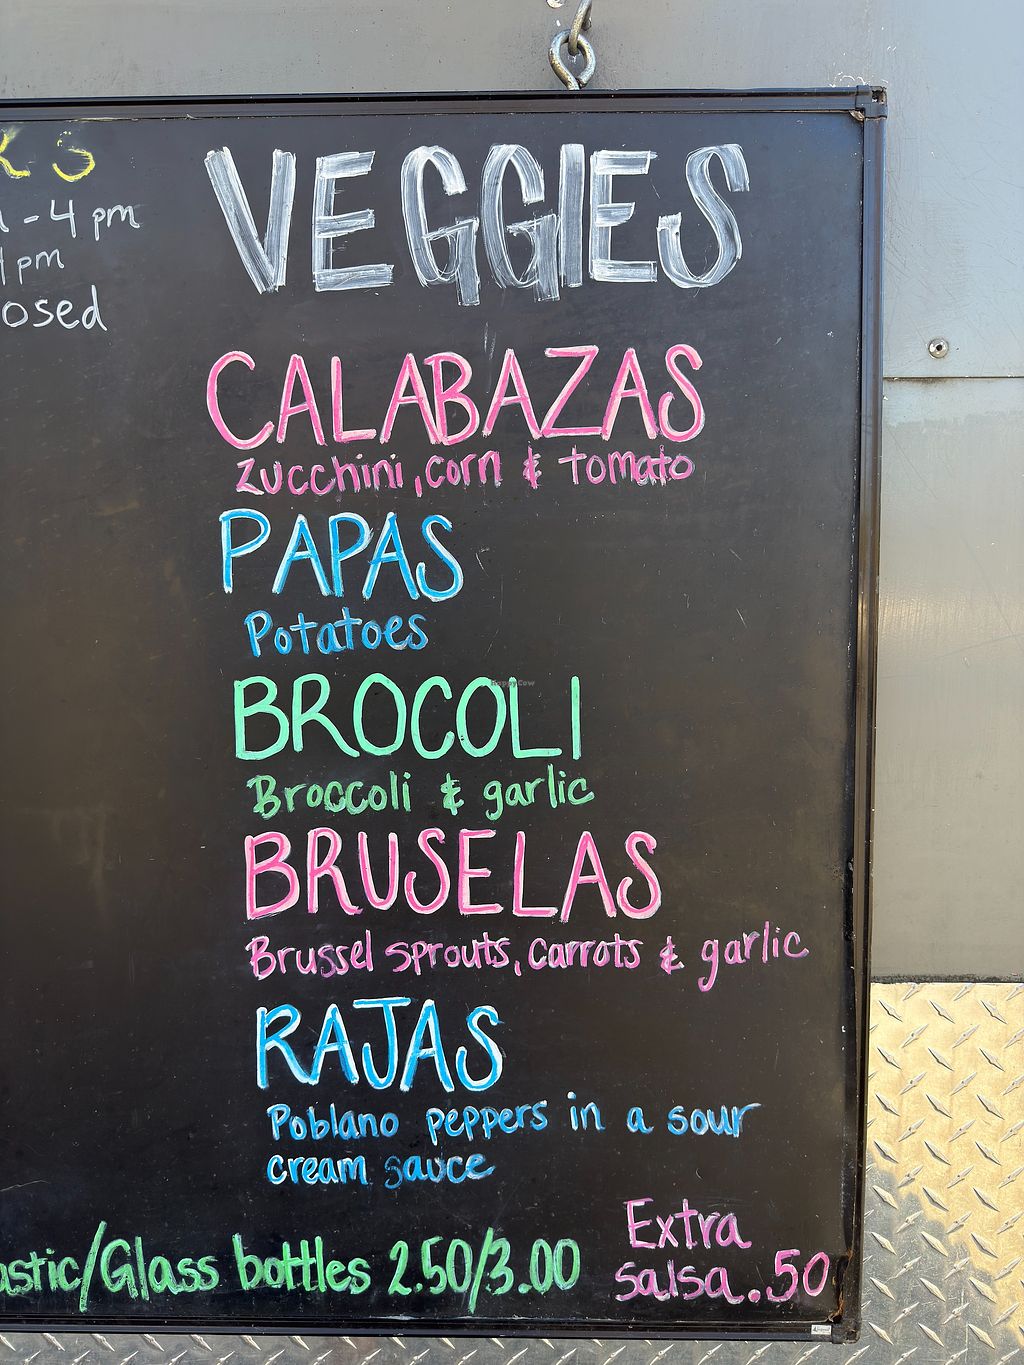 KS
- 4 pm
1 pm
osed
VEGGIES
CALABAZAS
Zucchini, corn & tomato
PAPAS
Potatoes
BROCOLI
Broccoli & garlic
BRUSELAS
Brussel sprouts, carrots & garlic
RAJAS
Poblano peppers in a sour
cream sauce
astic/Glass bottles 2.50/3.00
Extra
salsa .50
HappyCow